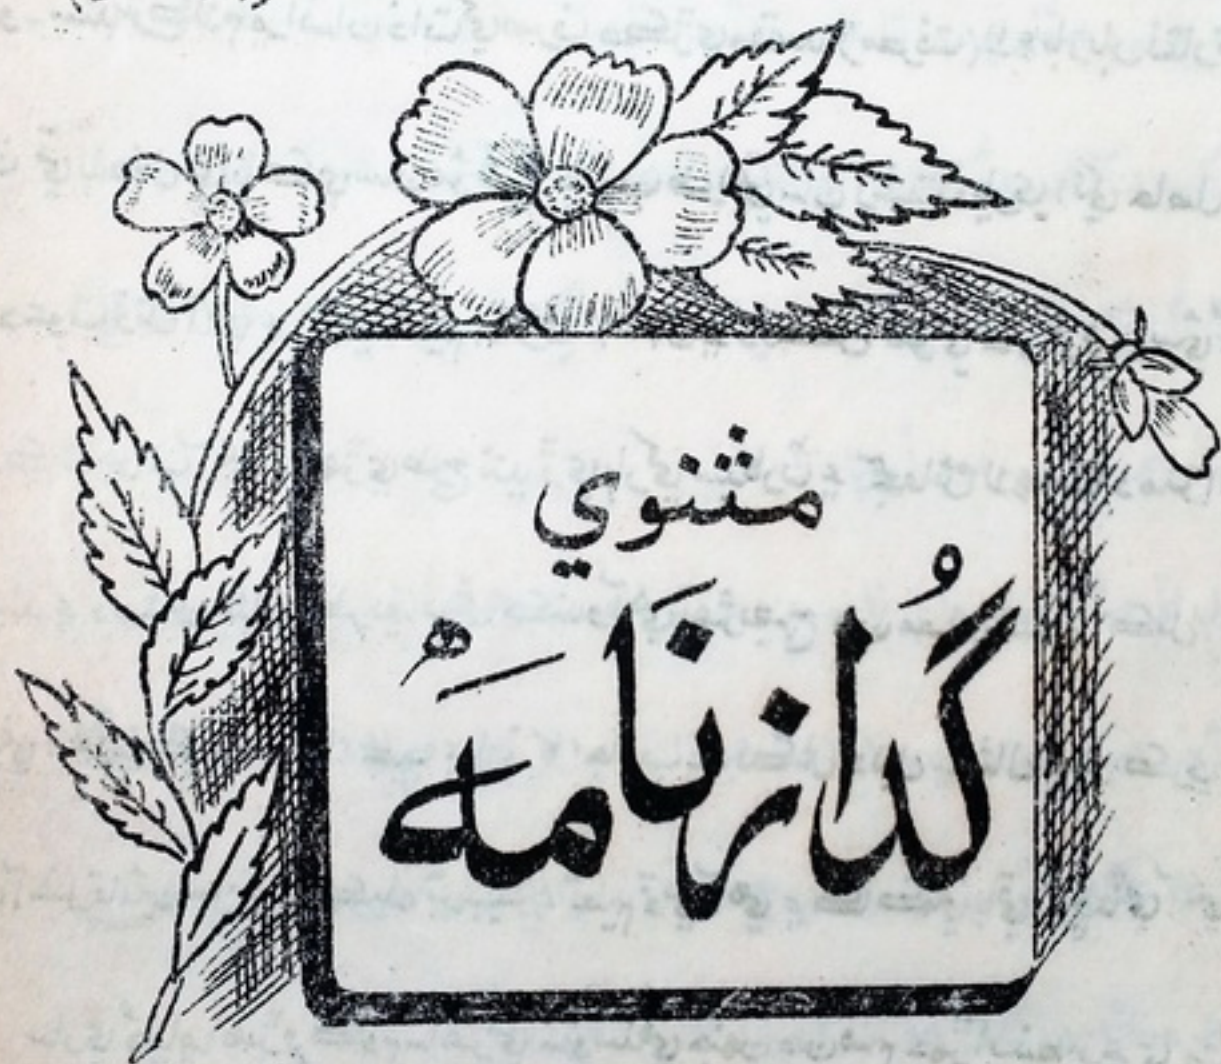 مثنوي
گُدازنامَهْ